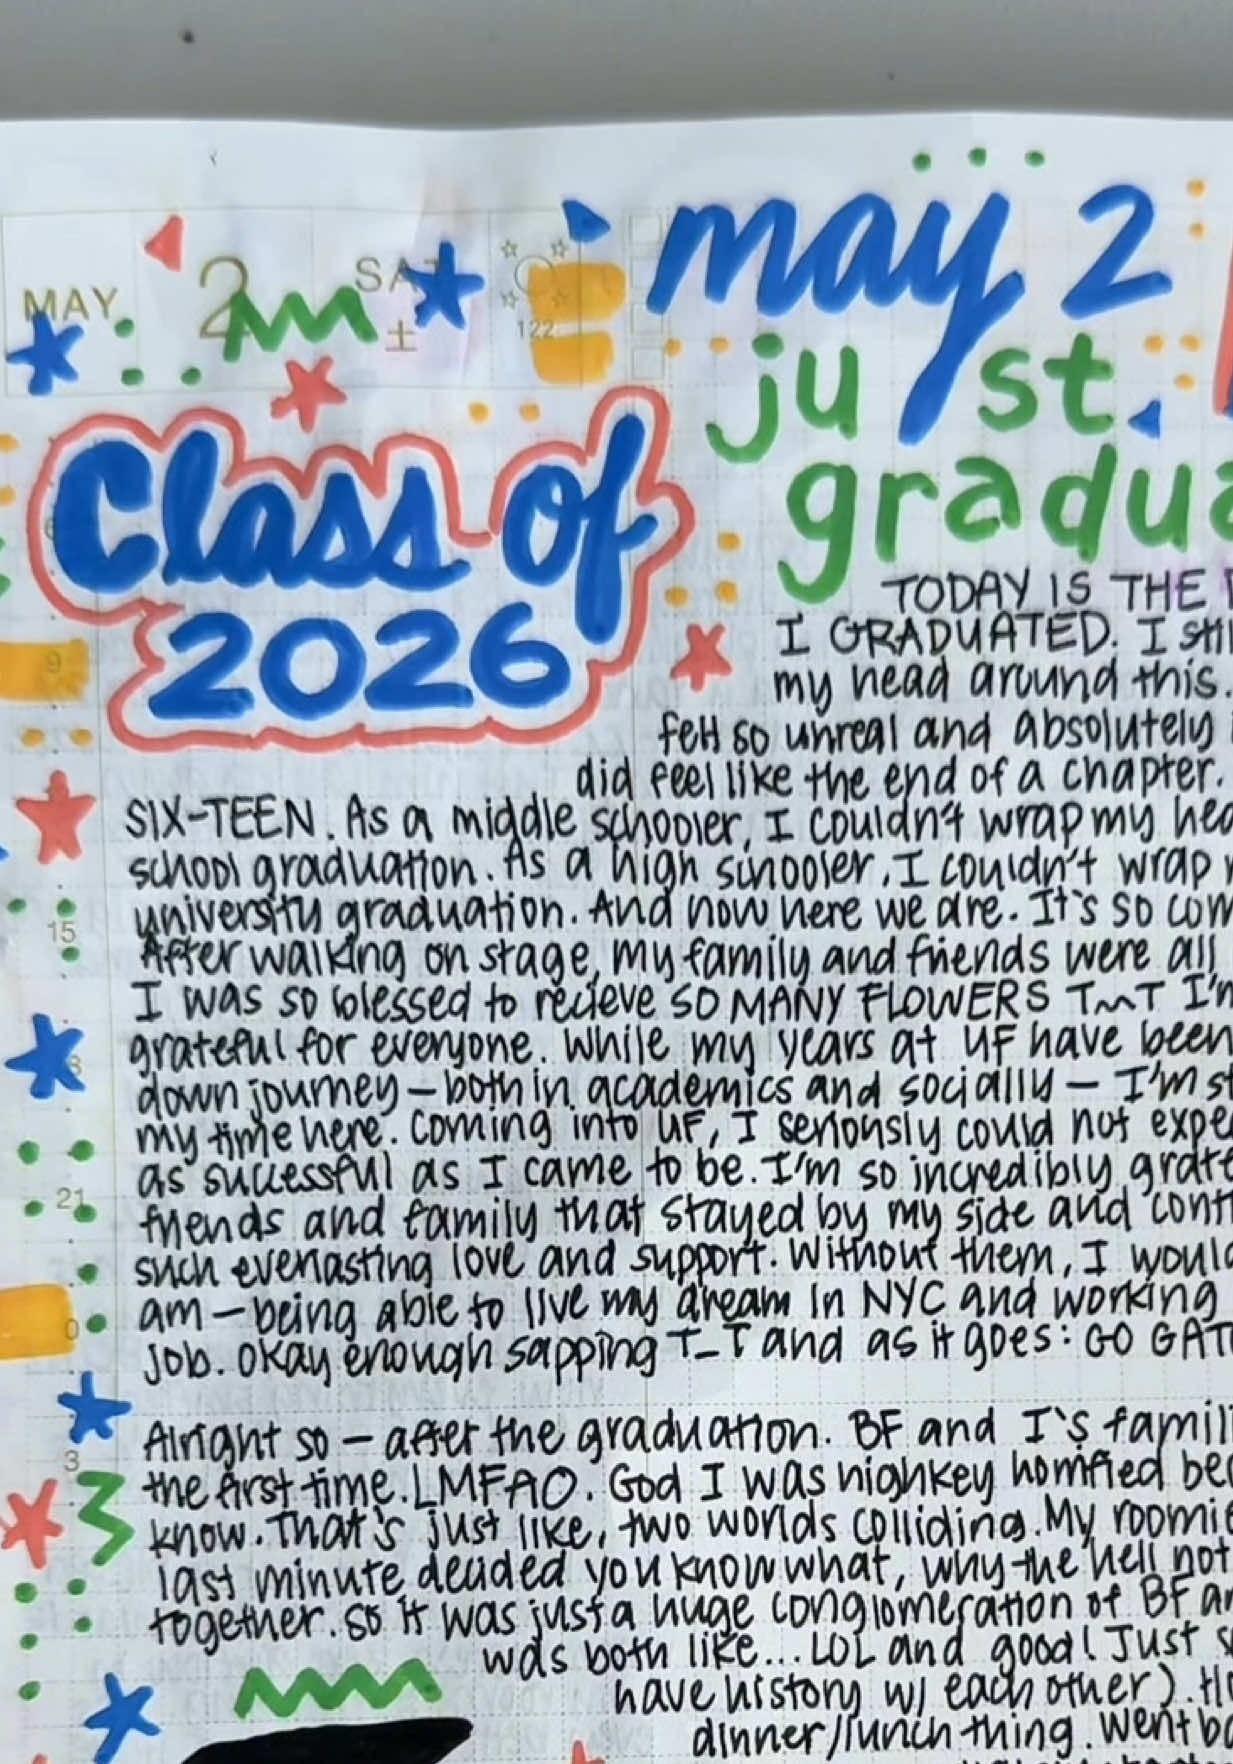 MAY 2 SAT
±
122
may 2
just
gradua
Class of
2026
TODAY IS THE
I GRADUATED. I still
my head around this.
felt so unreal and absolutely
did feel like the end of a chapter.
SIX-TEEN. As a middle schooler, I couldn't wrap my hea
school graduation. As a high schooler, I couldn't wrap
university graduation. And now here we are. It's so com
After walking on stage, my family and friends were all
I was so blessed to recieve SO MANY FLOWERS T~T I'm
grateful for everyone. While my years at UF have been
down journey – both in academics and socially – I'm st
my time here. Coming into UF, I seriously could not expe
as successful as I came to be. I'm so incredibly grate
friends and family that stayed by my side and cont
such everlasting love and support. Without them, I would
am – being able to live my dream in NYC and working
job. Okay enough sapping T_T and as it goes: GO GAT
Alright so – after the graduation. BF and I's famili
the first time. LMFAO. God I was highkey horrified bec
know. That's just like, two worlds colliding. My roomie
last minute decided you know what, why the hell not
together. So it was just a huge conglomeration of BF an
was both like... LOL and good! Just s
have history w/ each other). Ho
dinner/lunch thing. Went ba
9
15
21
0
3